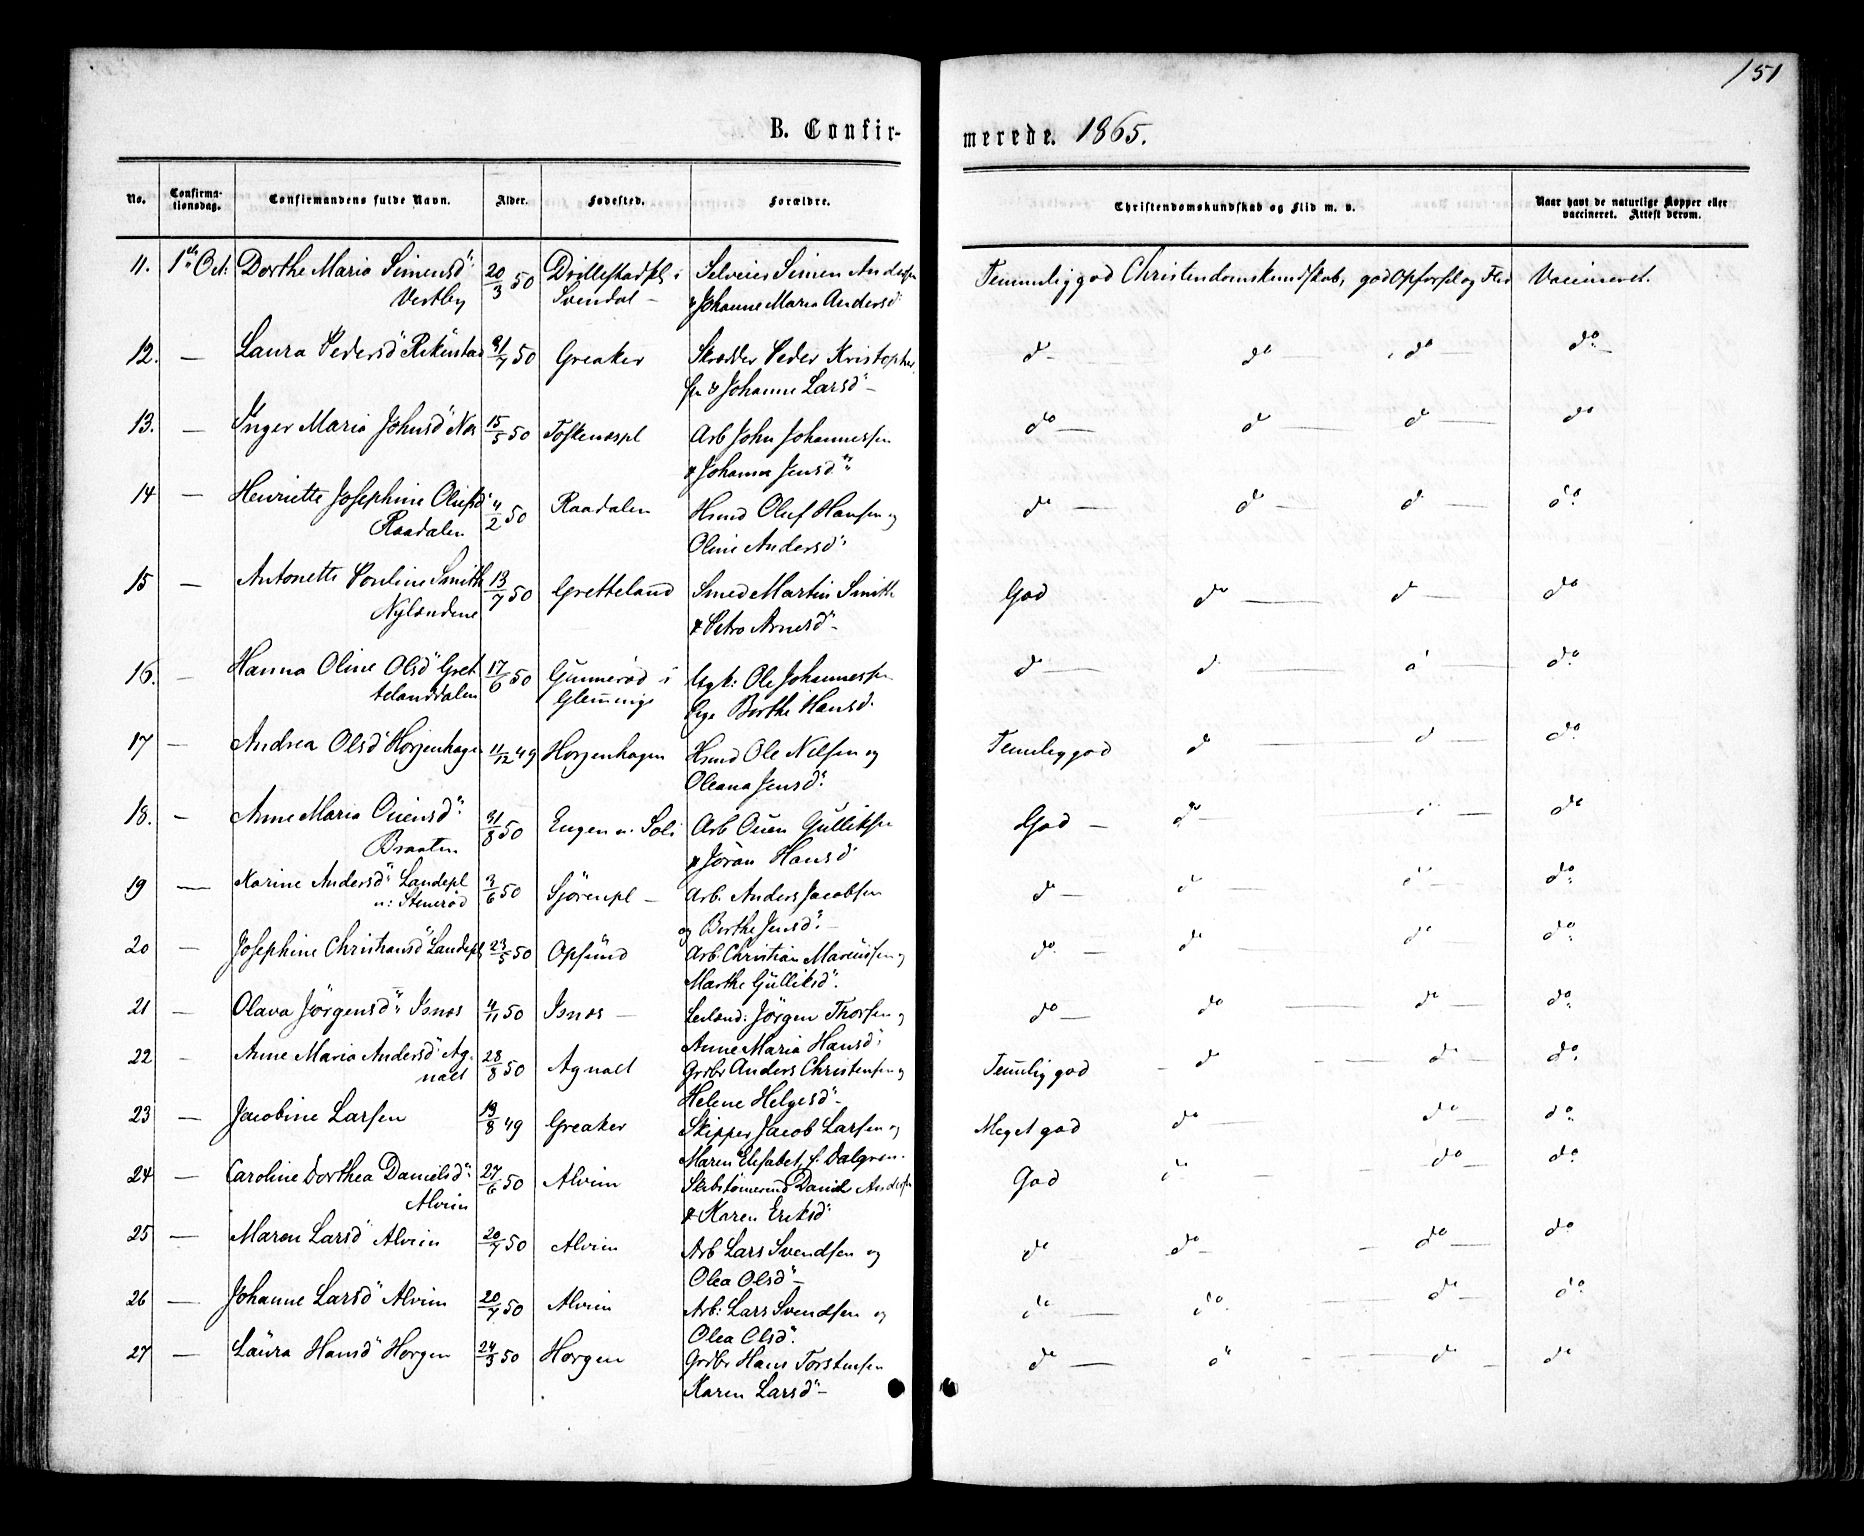 151
B. Confir-
merede. 1865.
No. Confirma-tionsdag. Confirmandens fulde Navn. Alder. Fødested. Forældre. Christendomskundskab og Flid m. v. Naar havt de naturlige Kopper eller vaccineret. Attest derom.
11. 1ste Oct: Dorthe Maria Simensd" 20/3 50 Drillestadpl i Selveier Simen Andersen Temmelig god Christendomskundskab, god Opførsel og Flid Vaccineret.
Vestby Svendal - & Johanne Maria Andersd
12. — Laura Pedersd" Rikenstad 31/7 50 Greaker Skrædder Peder Kristopher- do do do do
sen & Johanne Larsd" -
13. — Inger Maria Johnsd" Næs 15/5 50 Toskenæspl Arb John Johannessen do do do do
& Johanna Jensd"
14 — Henriette Josephine Olufsd" 4/2 50 Raadalen Hsmd Oluf Hansen og do do do do
Raadalen Oline Andersd"
15 — Antonette Pouline Smith 13/7 50 Gretteland Smed Martin Smith God do do do
Nylændene & Petro Arnesd" -
16. — Hanna Oline Olsd" Gret 17/6 50 Gunnerød i Ugk: Ole Johannessen do do do do
telanddalen Glemminge Pige Berthe Hansd.
17 — Andrea Olsd" Horgenhagen 11/12 49 Horgenhagen Hsmd Ole Nilsen og Temmelig god do do do
Oleana Jensd"
18. — Anne Maria Ouensd" 31/8 50 Eugen u. Soli Arb Ouen Gulliksen God do do do
Braaten & Jøran Hansd"
19 — Karine Andersd" Landepl 3/6 50 Sjørenpl - Arb. Anders Jacobsen do do do do
u: Stenerød og Berthe Jensd"
20 — Josephine Christiansd" Landepl 23/5 50 Opsund Arb. Christian Marcussen og do do do do
Marthe Gulliksd".
21 — Olava Jørgensd" Isnæs 4/11 50 Isnæs - Leilænd: Jørgen Thorsen og do do do do
Anne Maria Hansd"
22 — Anne Maria Andersd" Ag- 28/8 50 Agnalt Grdbr Anders Christensen og Temmelig god do do do
nalt Helene Helgesd" -
23 — Jacobine Larsen 13/8 49 Greaker Skipper Jacob Larsen og Meget god do do do
Maren Elisabet, f. Dalgren.
24 — Caroline Dorthea Danielsd" 27/6 50 Alvim Skibstømermd Daniel Andersen God do do do
Alvim & Karen Eriksd"
25 — Maren Larsd" Alvim 20/7 50 Alvim Arb Lars Svendsen og do do do do
Olea Olsd" -
26 — Johanne Larsd" Alvim 20/7 50 Alvim Arb: Lars Svendsen og do do do do
Olea Olsd".
27 — Laura Hansd" Horgen 24/3 50 Horgen Grdbr Hans Torstensen do do do do
Karen Larsd" -